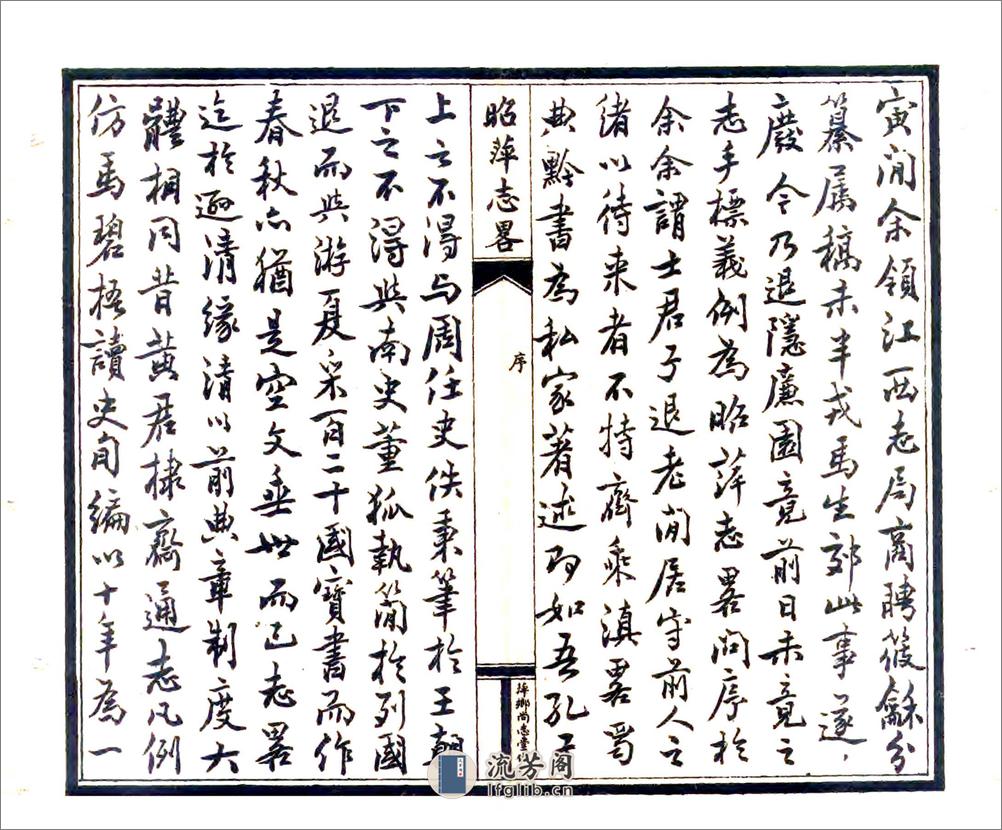 寅間余領江西志局商聘筱龢分
纂属稿未半戎馬生郊此事遂
廢令乃退隱廉園竟前日未竟之
志手標義例為昭萍志畧問序於
余余謂士君子退老閒居守前人之
緒以待来者不特齋乘滇畧蜀
典黔書為私家著述即如吾孔子
昭萍志畧
序
萍鄉尚志堂
上之不得与周任史佚秉筆於王朝
下之不得與南史董狐執簡於列國
退而與游夏采百二十國寶書而作
春秋亦猶是空文垂世而已志畧
迄於遜清緣清以前典章制度大
體相同昔黄君棣齋通志凡例
仿馬碧梧讀史旬編以十年為一
流芳阁
lfglib.cn